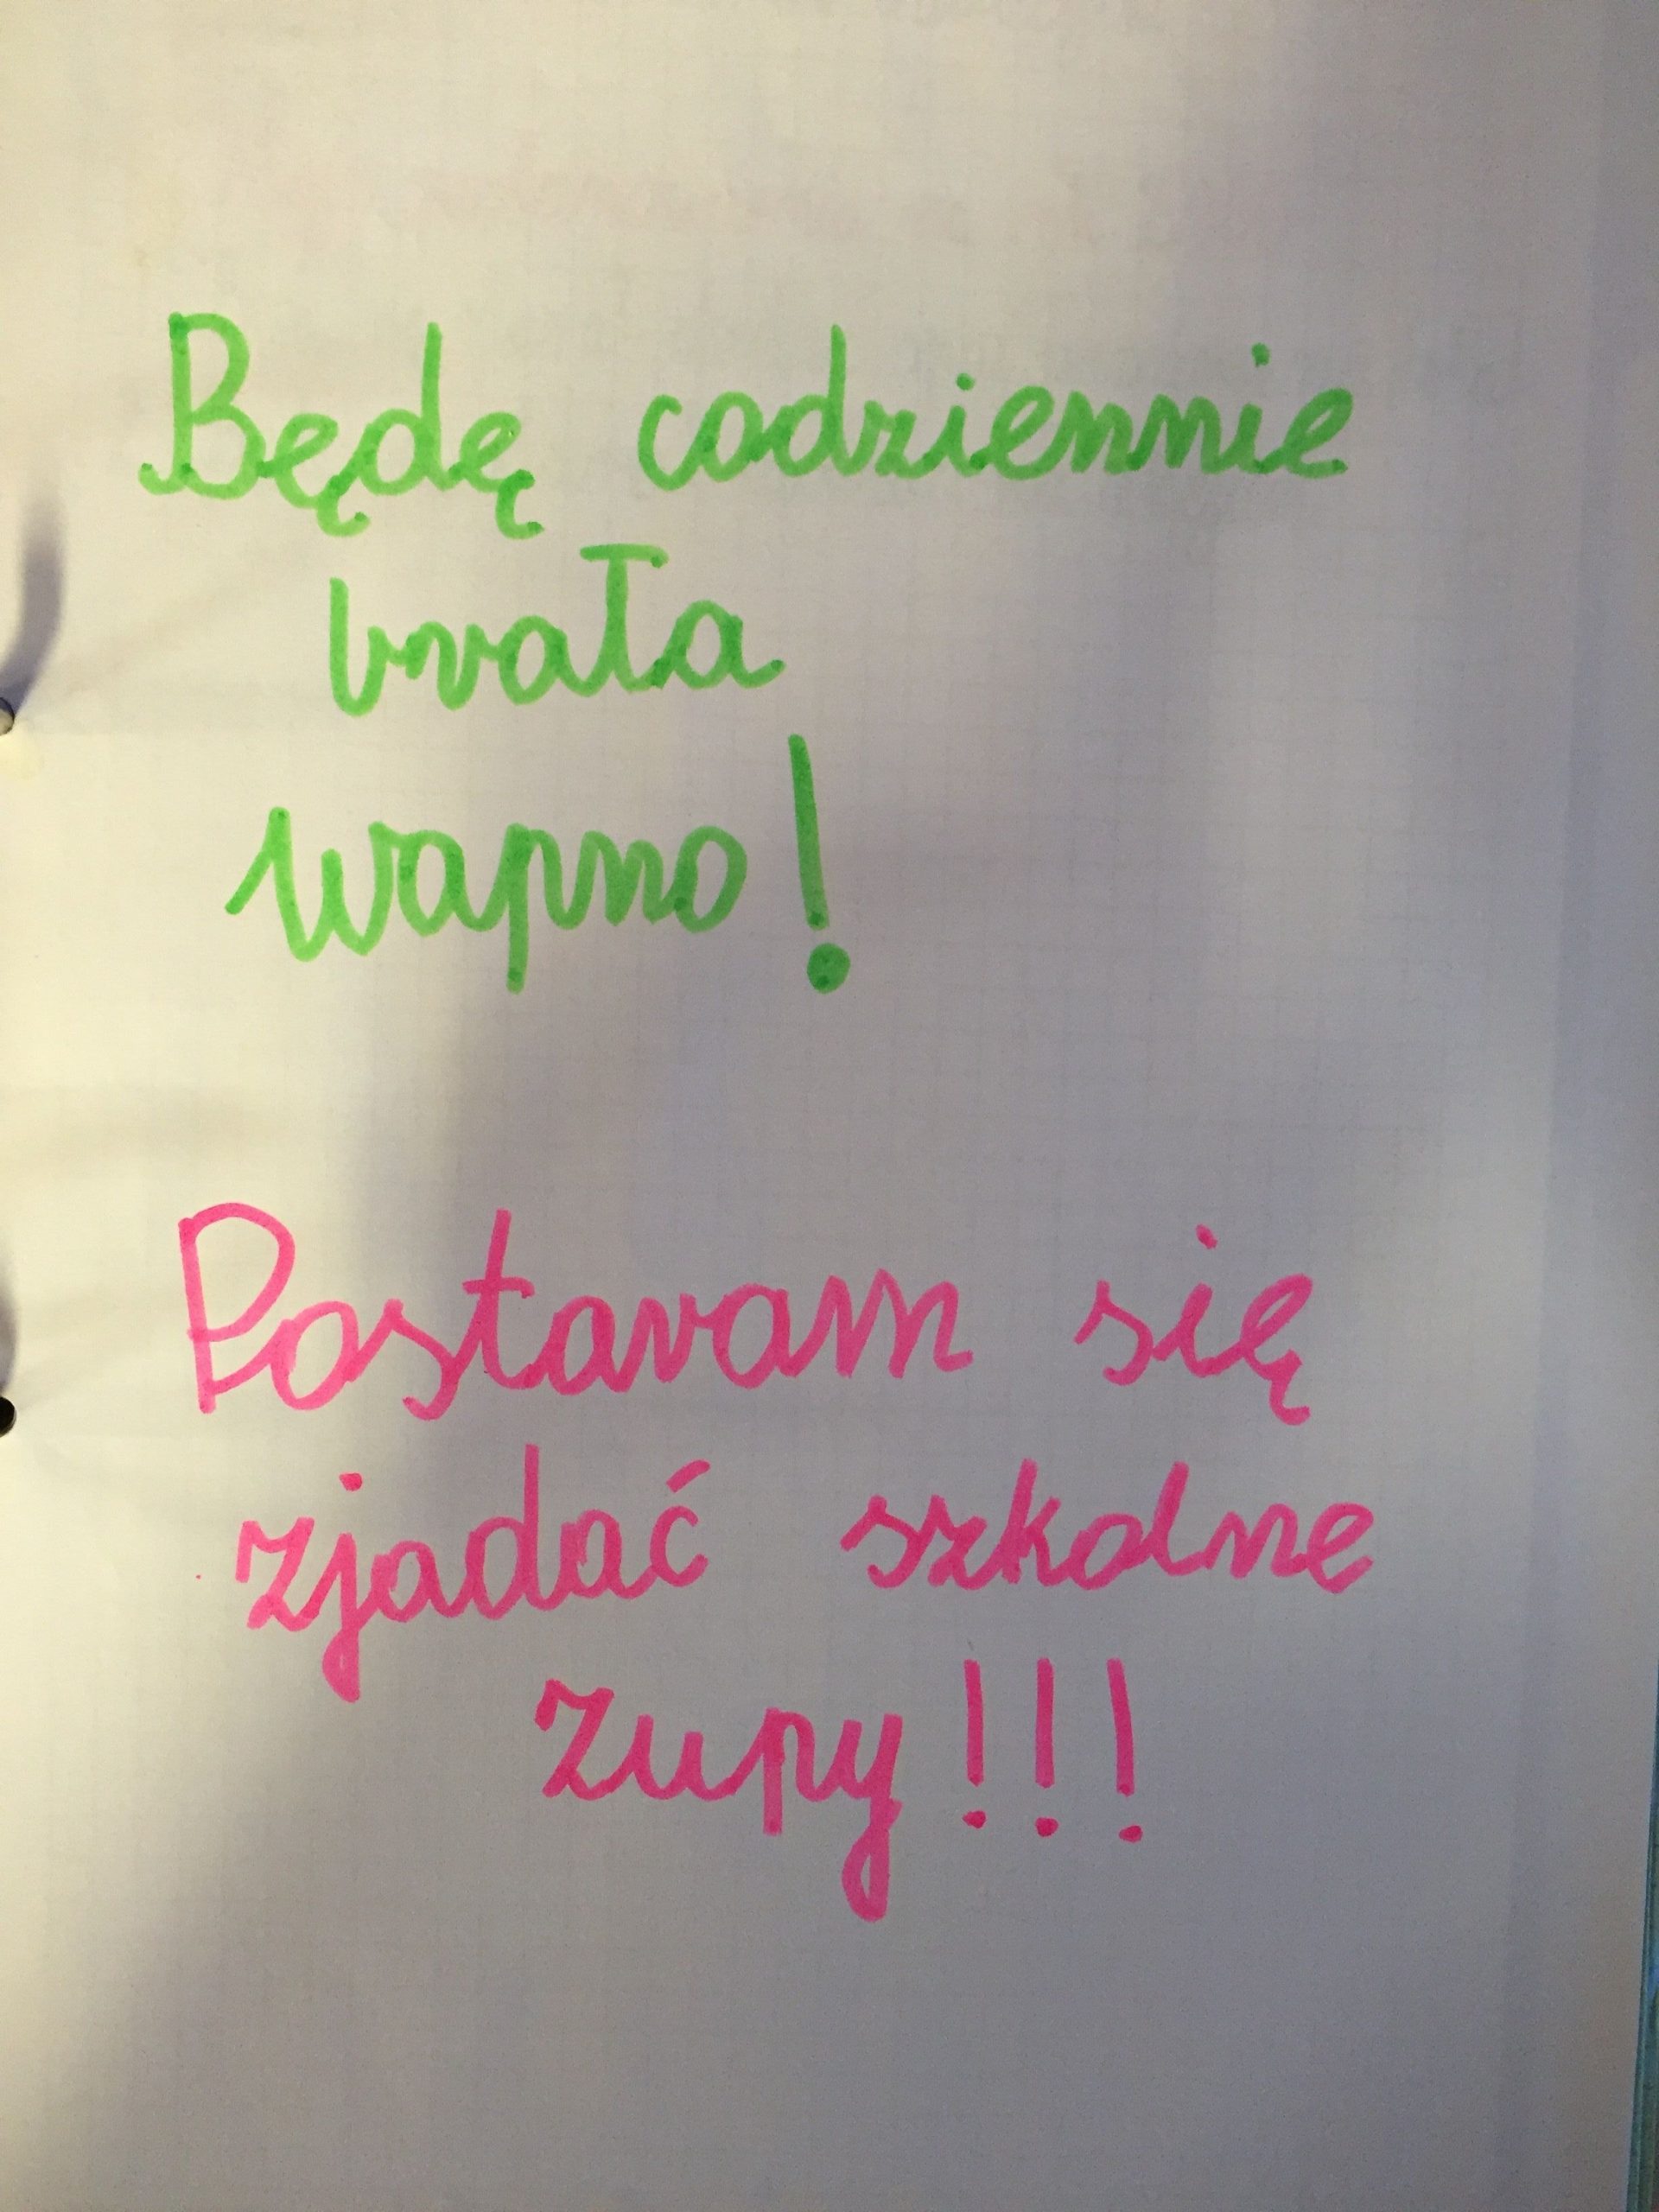 Będę codziennie
brała
wapno!
Postaram się
zjadać szkolne
zupy!!!